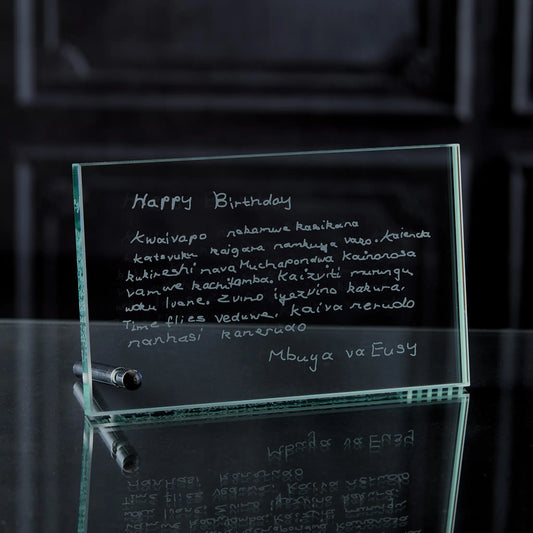 Happy Birthday
Kwaivapo nekamwe kasikana
katsvuku kaigara namhuya vazo. Kaienda
kukireshi nava Muchapondwa kainonosa
vamwe kachitamba. Kaizviti murungu
woku Ivane. Zvino iyezvino kakura.
Time flies veduwe, kaiva nerudo
nanhasi kanerudo
Mbuya va Eusy